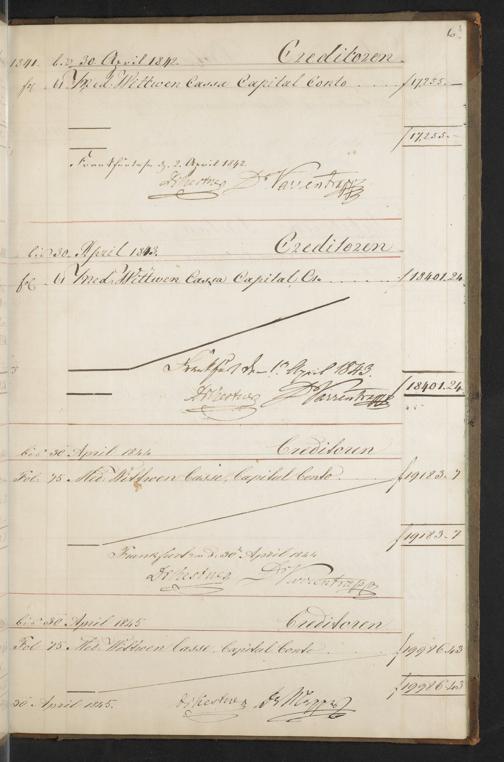 61
1841. bis 30 April 1842. Creditoren.
fol. 61 Med. Wittwen Cassa Capital Conto f 17235.—
f 17235.—
Frankfurt a/m d. 2. April 1842.
Dr Kestner Dr Varrentrapp
bis 30. April 1843. Creditoren
fol. 61 Med. Wittwen Cassa Capital Co. f 18401.24
Frankfurt den 1n April 1843.
f 18401.24
Dr Kestner Dr Varrentrapp
bis 30 April 1844 Creditoren
Fol. 75 Med. Wittwen Casse, Capital Conto f 19183.7
f 19183.7
Frankfurt a/m d. 30n April 1844
Dr Kestner Dr Varrentrapp
bis 30 April 1845 Creditoren
Fol. 75 Med. Wittwen Casse, Capital Conto f 19986.43
f 19986.43
30 April 1845. Dr Kestner